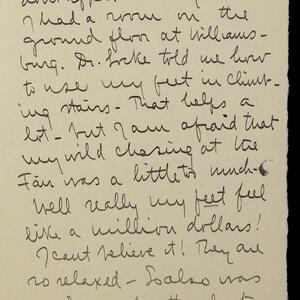 I had a room on the
ground floor at Williams-
burg. Dr. Locke told me how
to use my feet in climb-
ing stairs - That helps a
lot - but I am afraid that
my wild chasing at the
Fair was a little too much -
Well really my feet feel
like a million dollars!
I cant believe it! They are
so relaxed - So also was